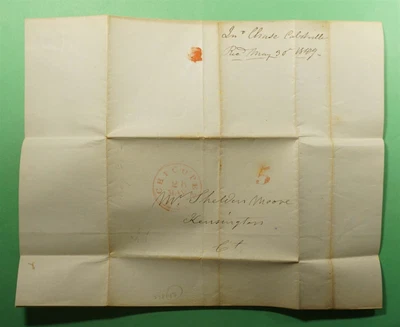 Jnº Chase
Recd May 30 1849.
5
Mr. Sheldon Moore
Kensington
Ct.